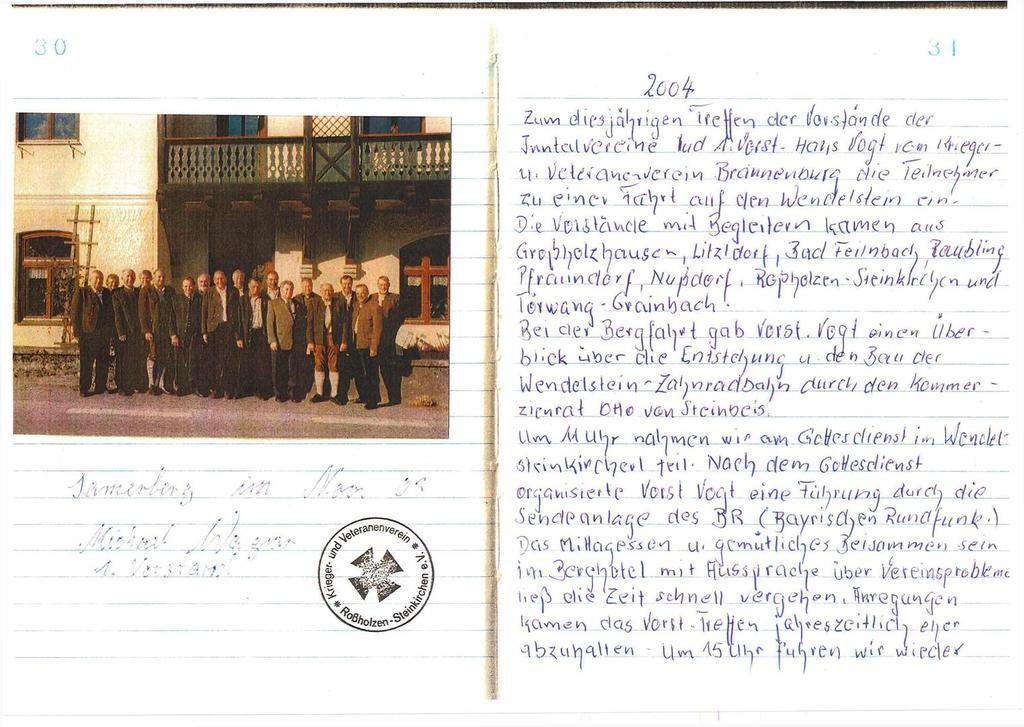 30
Samerberg im Nov 03
Michael Wagner
1. Vorstand
* Krieger- und Veteranenverein *
Roßholzen-Steinkirchen e.V.
31
2004
Zum diesjährigen Treffen der Vorstände der
Inntalvereine lud 1. Vorst- Hans Vogt vom Krieger-
u. Veteranenverein Brannenburg die Teilnehmer
zu einer Fahrt auf den Wendelstein ein.
Die Vorstände mit Begleitern kamen aus
Großholzhausen, Litzldorf, Bad Feilnbach, Raubling
Pfraundorf, Nußdorf, Roßholzen-Steinkirchen und
Törwang-Grainbach.
Bei der Bergfahrt gab Vorst. Vogt einen Über-
blick über die Entstehung u. den Bau der
Wendelstein-Zahnradbahn durch den Kommer-
zienrat Otto von Steinbeis.
Um 11 Uhr nahmen wir am Gottesdienst im Wendel-
steinkircherl teil. Nach dem Gottesdienst
organisierte Vorst Vogt eine Führung durch die
Sendeanlage des BR (Bayrischen Rundfunk.)
Das Mittagessen u. gemütliches Beisammen sein
im Berghotel mit Aussprache über Vereinsprobleme
ließ die Zeit schnell vergehen. Anregungen
kamen das Vorst-Treffen jahreszeitlich eher
abzuhalten. Um 15 Uhr fuhren wir wieder